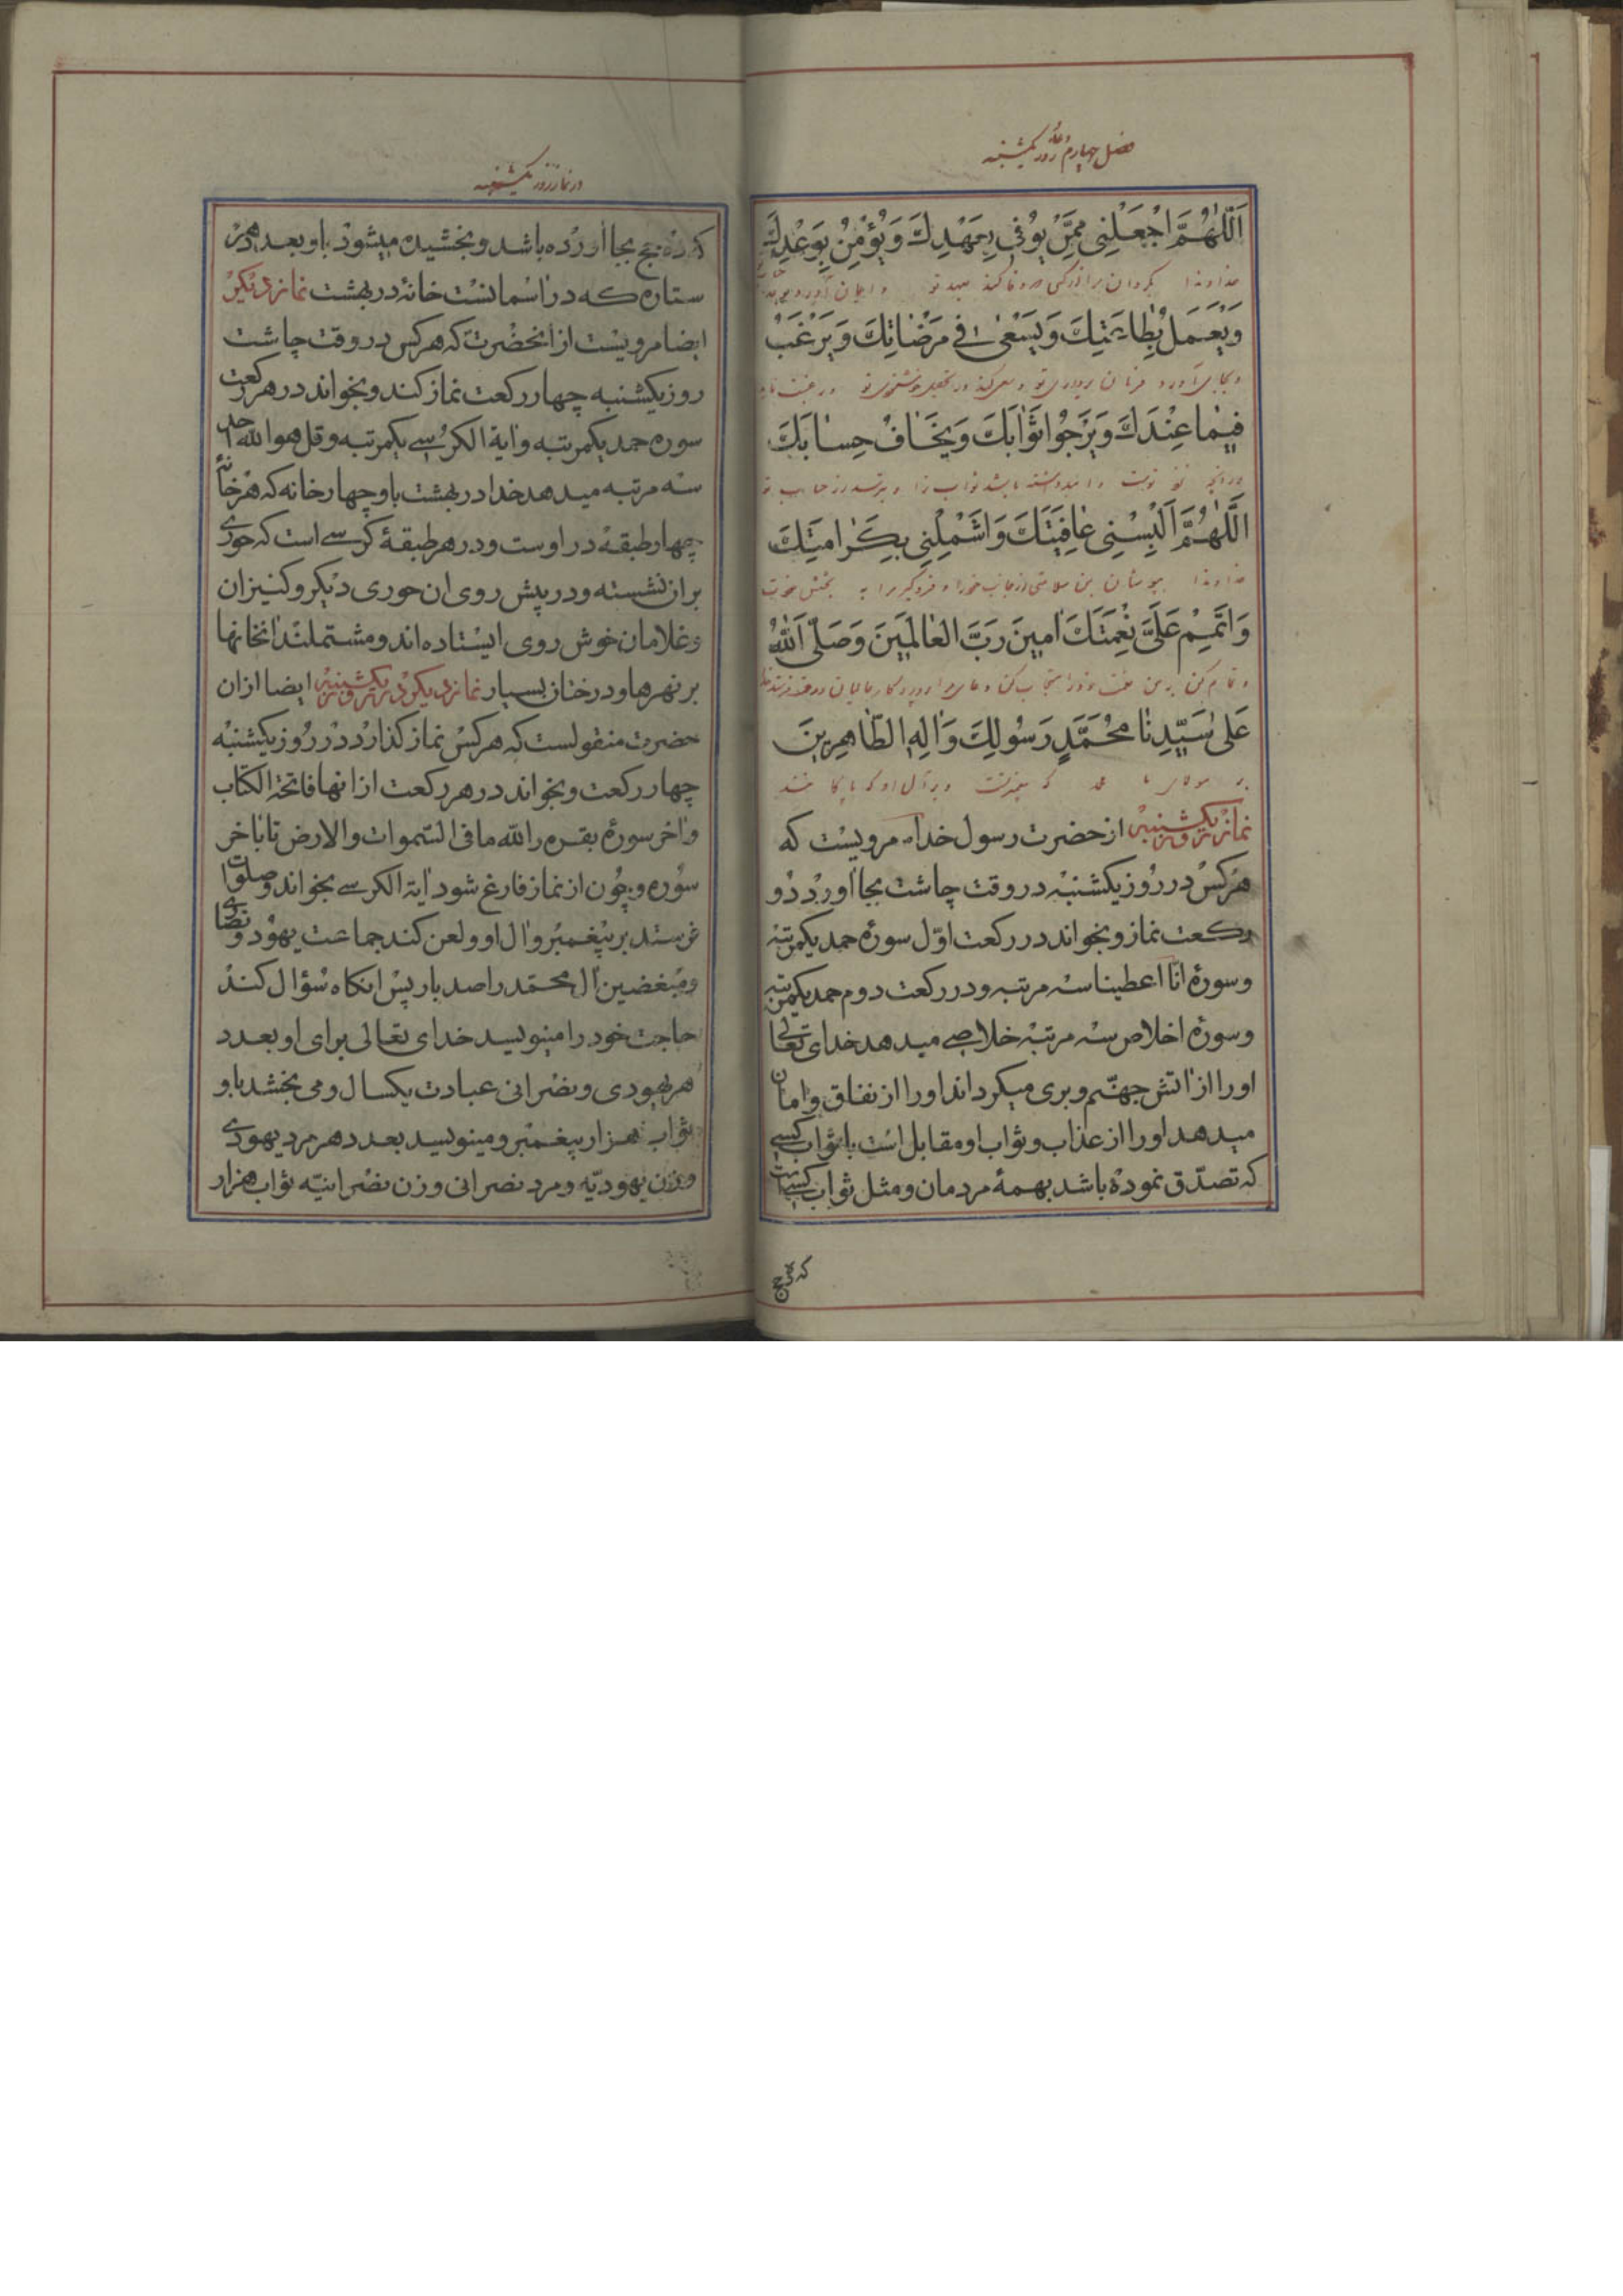 فصل چهارم روز یکشنبه
اَللّٰهُمَّ اجْعَلْنِی مِمَّنْ یُوفِی بِعَهْدِكَ وَیُؤْمِنُ بِوَعْدِكَ
خداوندا بگردان مرا از کسی که وفا کند بعهد تو و ایمان آورد بوعده
وَیَعْمَلُ بِطاعَتِكَ وَیَسْعٰی فی مَرْضاتِكَ وَیَرْغَبُ
و بجای آورد فرمان برداری تو و سعی کند در تحصیل خشنودی تو و رغبت نماید
فیما عِنْدَكَ وَیَرْجُوا ثَوابَكَ وَیَخافُ حِسابَكَ
در آنچه نزد توست و امید داشته باشد ثواب ترا و بترسد از حساب تو
اَللّٰهُمَّ اَلْبِسْنِی عافِیَتَكَ وَاشْمُلْنِی بِکَرامَتِكَ
خداوندا بپوشان بمن سلامتی از جانب خود را و فرو گیر مرا به بخشش خودت
وَاَتْمِمْ عَلَیَّ نِعْمَتَكَ اٰمینَ رَبَّ الْعالَمینَ وَصَلَّی اللّٰهُ
و تمام کن بر من نعمت خود را
عَلیٰ سَیِّدِنا مُحَمَّدٍ رَسُولِكَ وَاٰلِهِ الطّاهِرینَ
بر مولای ما محمد که پیغمبر تست و بر آل او که پاکانند
نماز روز یکشنبه از حضرت رسول خدا مرویست که
هر کس در روز یکشنبه در وقت چاشت بجا اورد دو
رکعت نماز و بخواند در رکعت اوّل سورهٔ حمد یکمرتبه
و سورهٔ انّا اعطینا سه مرتبه و در رکعت دوم حمد یکمرتبه
و سورهٔ اخلاص سه مرتبه خلاصی میدهد خدای تعالی
او را از اتش جهنّم و بری میکرداند او را از نفاق و امان
میدهد او را از عذاب و ثواب او مقابل است با ثواب کسی
که تصدّق نموده باشد بهمهٔ مردمان و مثل ثواب کسیست
که ده حج
در نماز روز یکشنبه
که ده حج بجا اورده باشد و بخشیده میشود باو بعدد هر
ستاره که در اسمانست خانهٔ در بهشت نماز دیکر
ایضا مرویست از انحضرت که هر کس در وقت چاشت
روز یکشنبه چهار رکعت نماز کند و بخواند در هر رکعت
سوره حمد یکمرتبه و ایة الکرسی یکمرتبه و قل هو الله احد
سه مرتبه میدهد خدا در بهشت باو چهار خانه که هر خانهٔ
چهار طبقه در اوست و در هر طبقهٔ کرسی است که حوری
بران نشسته و در پیش روی ان حوری دیکر و کنیزان
و غلامان خوش روی ایستاده اند و مشتملند انخانها
بر نهرها و درختان بسیار نماز دیکر در روز یکشنبه ایضا ازان
حضرت منقولست که هر کس نماز کذارد در روز یکشنبه
چهار رکعت و بخواند در هر رکعت از انها فاتحة الکتاب
و اخر سورهٔ بقره را لله ما فی السّموات والارض تا باخر
سوره و چون از نماز فارغ شود ایة الکرسی بخواند و صلوات
فرستد بر پیغمبر و ال او و لعن کند جماعت یهود و نصاری
و مبغضین ال محمّد را صد بار پس انکاه سؤال کند
حاجت خود را مینویسد خدای تعالی برای او بعدد
هر یهودی و نصرانی عبادت یکسال و می بخشد باو
ثواب هزار پیغمبر و مینویسد بعدد هر مرد یهودی
و زن یهودیّه و مرد نصرانی و زن نصرانیّه ثواب هزار